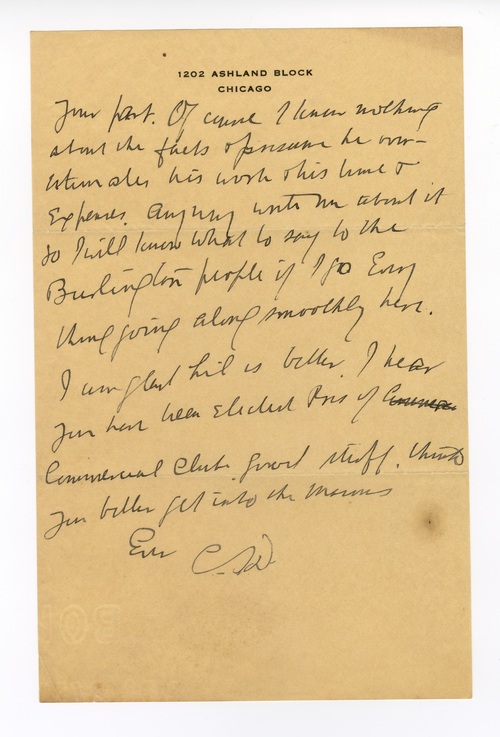 1202 ASHLAND BLOCK
CHICAGO
Your part. Of course I know nothing
about the facts & presume he over-
estimates his work & his time &
Expenses. Anyway write me about it
So I will know what to say to the
Burlington people if I go Every
thing going along smoothly here.
I am glad is better. I hear
you have been Elected Pres of
Commercial Club. Good stuff. think
you better get into the Masons
Ever C.S.D.